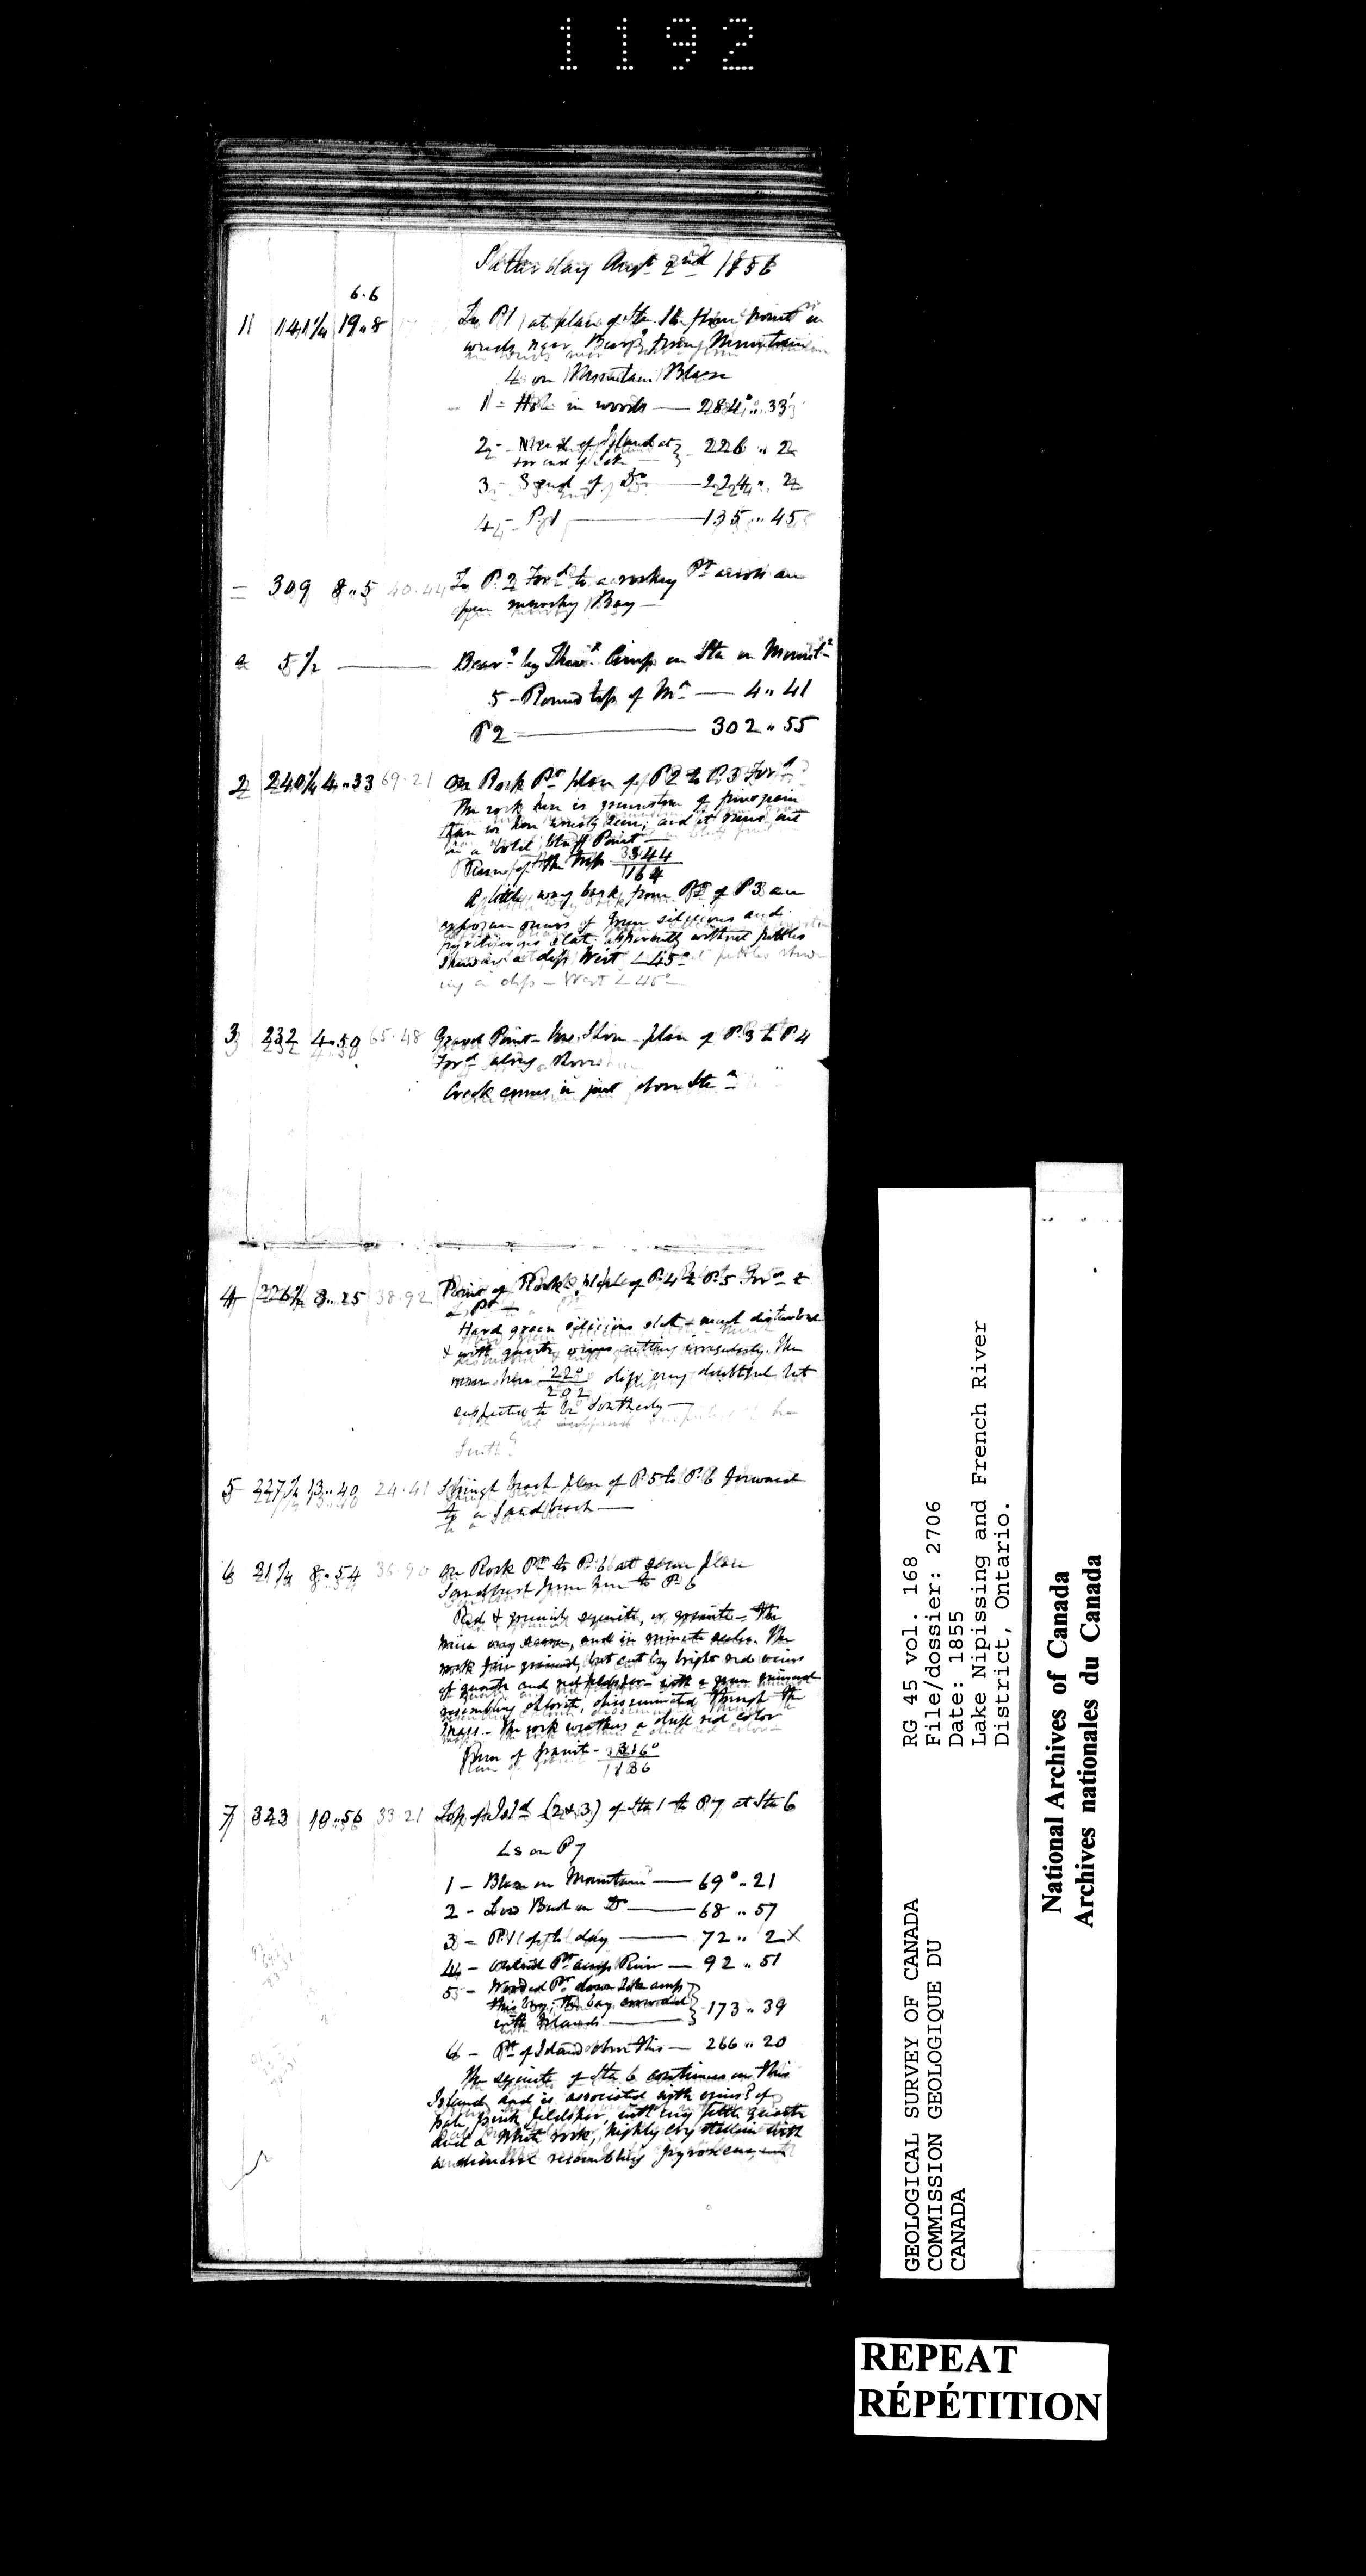 1192
Saturday Augt 2nd 1856
6.6
1 141 1/4 19..8 To P1 at place of Sta 1 from point in
woods near from Mountain
∠s on Mountain Blaze
1 - in woods — 284°..33'
2 - N end of Island at } 226 .. 2
far end of Lake
3 - S end of Do — 224 .. 2
4 - P.1 — 135 .. 45
= 309 8..5 40.44 To P.2 Ford to a rocky Pt across an
open marshy Bay —
a 5 1/2 — Bearg by on Sta on Mountn
5 - Round top of Mn — 4 .. 41
P2 — 302 .. 55
2 240 1/4 4..33 69.21 On Rock Pt place of P2 to P.3 Ford
The rock here is greenstone of finer grain
than we have usually seen; and it runs out
in a bold bluff Point —
Run of the trap 344
164
A little way back from Pt of P3 an
exposure occurs of green silicious and
pyritiferous slate; apparently without pebbles
showing a dip West ∠45°
ing a dip - West ∠45° —
3 232 4..50 65.48 Gravel Point - place of P.3 to P4
Ford along shore
Creek comes in just above Sta
4 226 1/2 8..25 38.92 Point of Rock place of P.4 to P.5 Ford to
a Pt —
Hard green silicious slate - much disturbed
& with quartz veins cutting irregularly. The
run here 220
202 dip very doubtful but
suspected to be Southerly —
South?
5 227 1/2 13..40 24.41 Shingle beach place of P.5 to P.6 forward
to a Sand beach —
6 21 1/4 8..54 36.90 On Rock Pt to P.6 at same place
Sandbeach from here to P.6
Red & greenish syenite, or granite - The
mica very scarce, and in minute scales. The
rock fine grained, but cut by bright red veins
of quartz and red feldspar - with a green mineral
resembling chlorite, disseminated through the
mass. - The rock weathers a dull red color
Run of granite - 316°
136
7 323 10..56 33.21 Top of Isld (2 & 3) of Sta 1 to P7 at Sta 6
∠s on P7
1 - Blaze on Mountain — 69° .. 21
2 - Bush on Do — 68 .. 57
3 - P.1 of to day — 72 .. 2 X
4 - Pt River — 92 .. 51
5 - Wooded Pt down Lake
this bay; the bay crowded } 173 .. 39
with Islands
6 - Pt of Island above this — 266 .. 20
The syenite of Sta 6 continues on this
Island and is associated with veins? of
pale pink feldspar, with very little quartz
and a white rock, highly crystalline with
a mineral resembling pyroxene,
RG 45 vol. 168
File/dossier: 2706
Date: 1855
Lake Nipissing and French River
District, Ontario.
GEOLOGICAL SURVEY OF CANADA
COMMISSION GEOLOGIQUE DU
CANADA
National Archives of Canada
Archives nationales du Canada
REPEAT
RÉPÉTITION